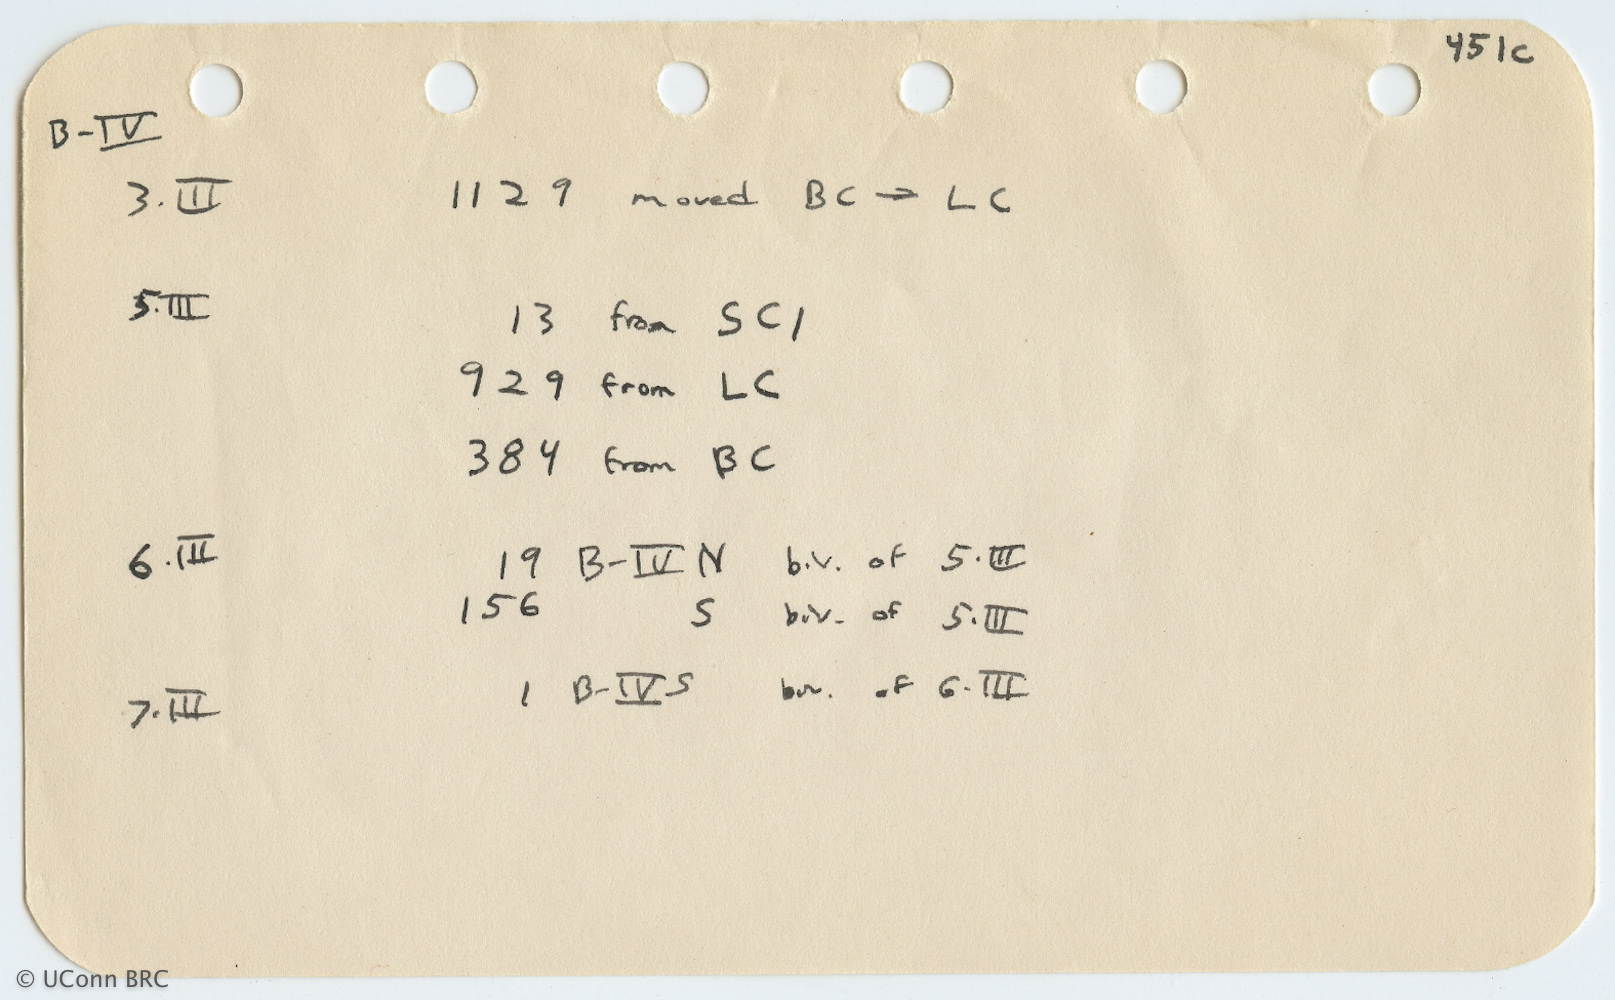 451c
B-IV
3.III 1129 moved BC → LC
5.III 13 from SC1
929 from LC
384 from BC
6.III 19 B-IV N b.v. of 5.III
156 S b.v. of 5.III
7.III 1 B-IV S b.v. of 6.III
© UConn BRC